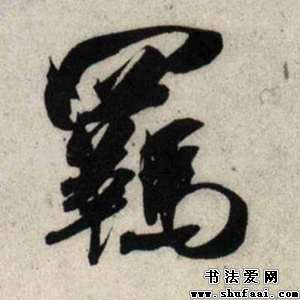 羈
书法爱网
www.shufaai.com